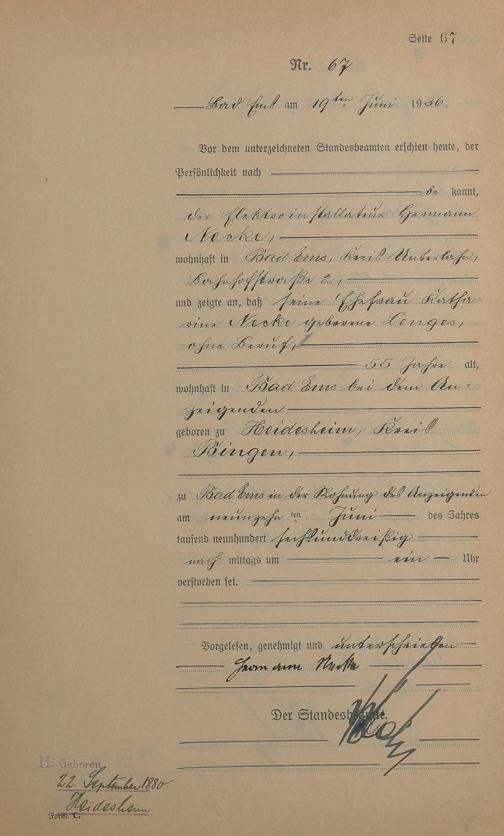 Seite 67
Nr. 67
Bad Ems am 19ten Juni 1936.
Vor dem unterzeichneten Standesbeamten erschien heute, der
Persönlichkeit nach
be kannt,
der Elektroinstallateur Hermann
Necke,
wohnhaft in Bad Ems, Kreis Unterlahn,
Bahnhofstraße 2,
und zeigte an, daß seine Ehefrau Katha-
rine Necke geborene Lenges,
ohne Beruf,
55 Jahre alt,
wohnhaft in Bad Ems bei dem An-
zeigenden
geboren zu Heidesheim, Kreis
Bingen,
zu Bad Ems in der Wohnung des Anzeigenden
am neunzehn ten Juni des Jahres
tausend neunhundert sechsunddreißig
nach mittags um ein Uhr
verstorben sei.
Vorgelesen, genehmigt und unterschrieben
Hermann Necke
Der Standesbeamte.
H. Geboren
22. September 1880
Heidesheim
Form. C.